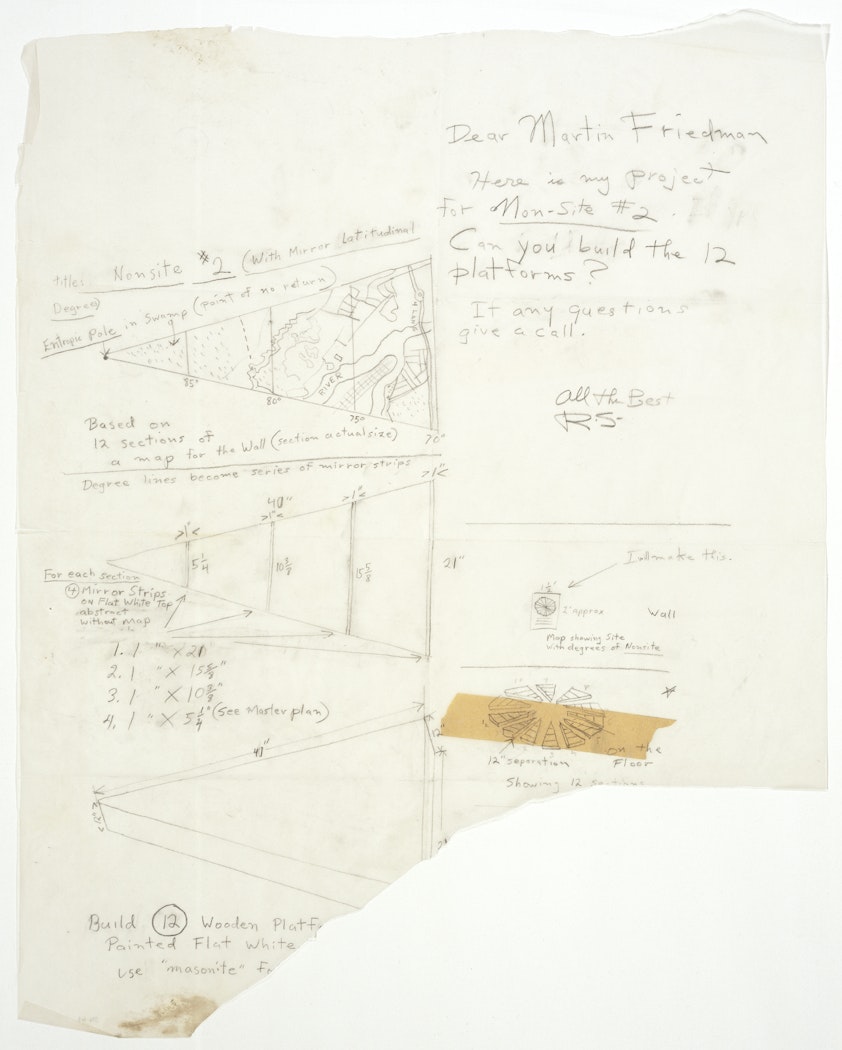 Dear Martin Friedman
Here is my project
for Non-Site #2.
Can you build the 12
platforms?
If any questions
give a call.
All the Best
R.S.
title: Nonsite #2 (With Mirror Latitudinal
Degree)
Entropic Pole in Swamp (point of no return)
85°
80°
75°
70°
RIVER
Based on
12 sections of
a map for the Wall (section actual size)
Degree lines become series of mirror strips
40"
>1"<
>1"<
>1"<
>1"<
5 1/4
15 5/8
21"
For each section
④ Mirror Strips
on Flat White Top
abstract
without map
1. 1 " X 21
2. 1 " X 15 5/8"
3. 1 " X 10
4. 1 " X 5 1/4" (See Master plan)
I will make this.
2' approx
Wall
Map showing Site
with degrees of Nonsite
12" separation
on the
Floor
Showing 12 sections
12"
12"
Build ⑫ Wooden Platf
Painted Flat White
use "masonite" fo